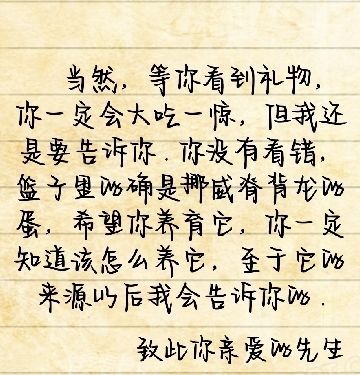 当然，等你看到礼物，
你一定会大吃一惊，但我还
是要告诉你．你没有看错，
篮子里的确是挪威脊背龙的
蛋，希望你养育它，你一定
知道该怎么养它，至于它的
来源以后我会告诉你的．
致此你亲爱的先生